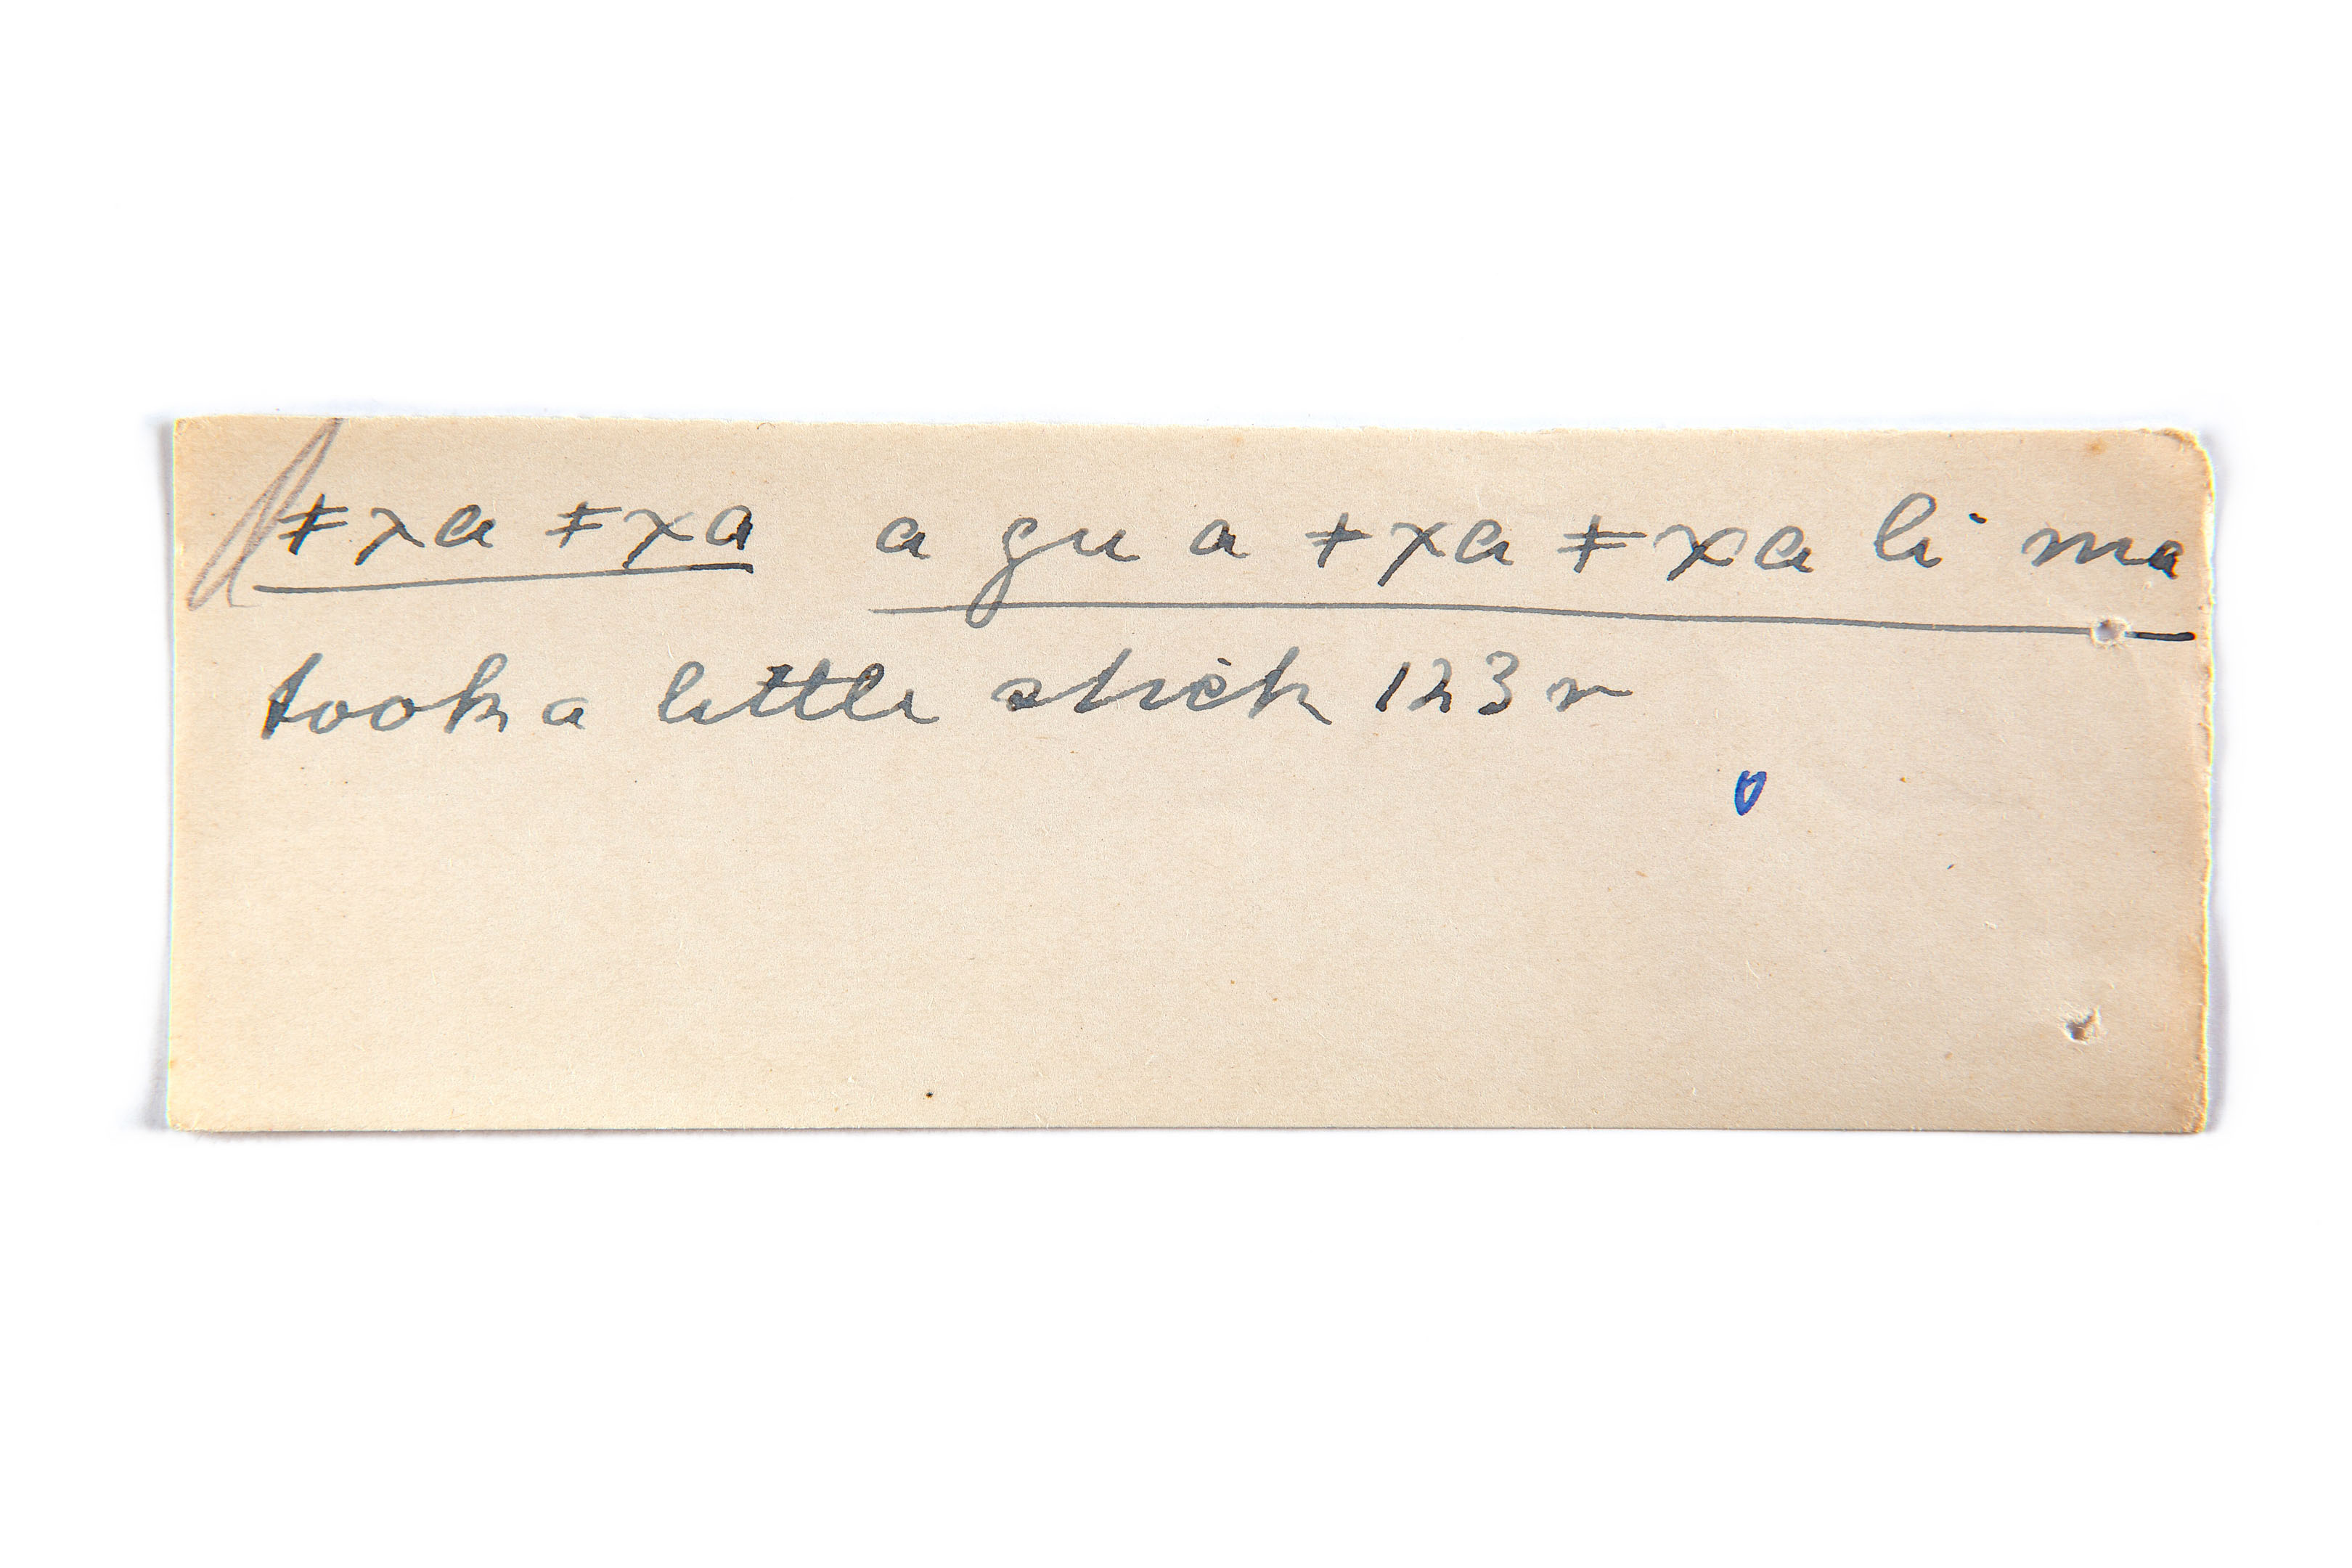 ǂxa ǂxa a gu a ǂxa ǂxa li ma
took a little stick 123 r